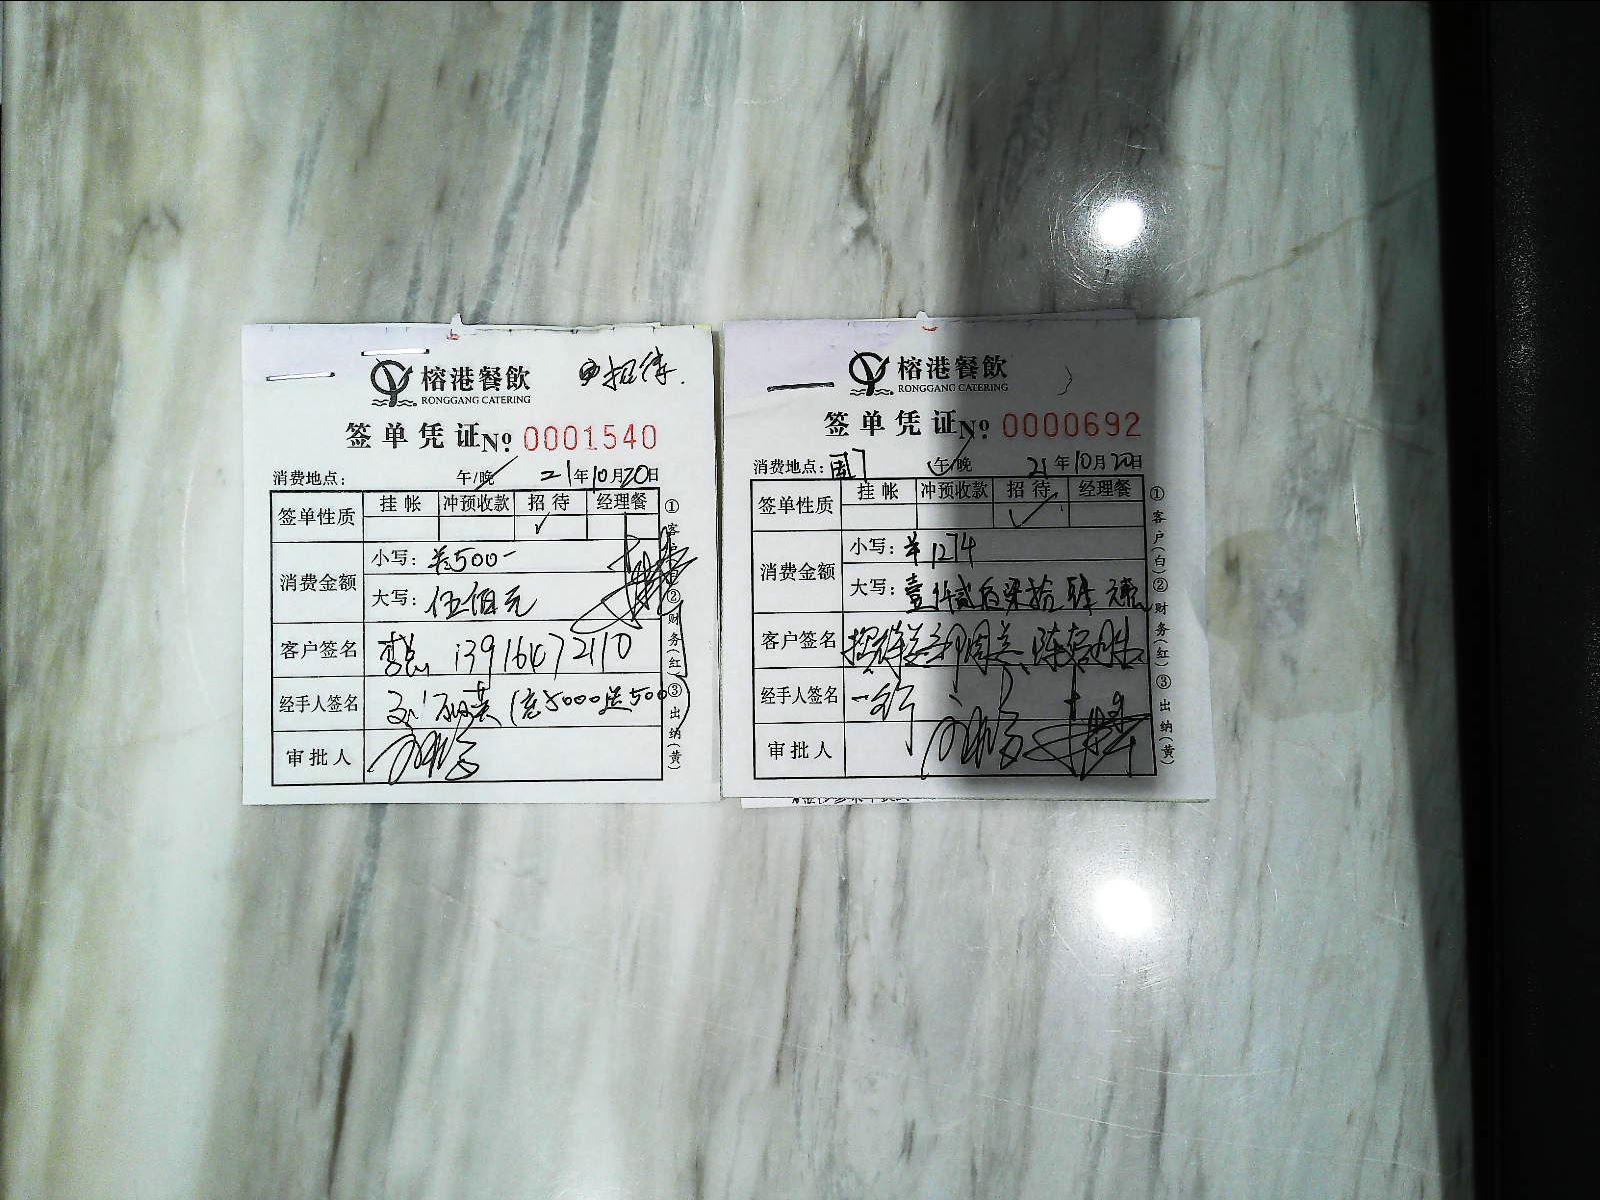 榕港餐飲
招待.
RONGGANG CATERING
签单凭证 No 0001540
消费地点: 午/晚 21年10月20日
签单性质 挂帐 冲预收款 招待 经理餐
✓
消费金额
小写: ¥500-
大写: 伍佰元
客户签名 13916472110
经手人签名 (充5000送500)
审批人
①客户(白)②财务(红)③出纳(黄)
榕港餐飲
RONGGANG CATERING
签单凭证 No 0000692
消费地点: 午/晚 21年10月20日
签单性质 挂帐 冲预收款 招待 经理餐
✓
消费金额
小写: ¥1274
大写: 壹仟贰百柒拾肆元
客户签名
经手人签名
审批人
①客户(白)②财务(红)③出纳(黄)